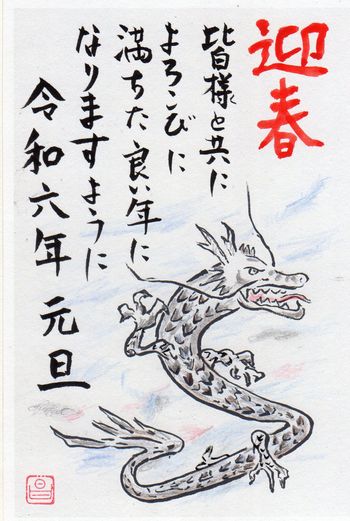 迎春
皆様と共に
よろこびに
満ちた良い年に
なりますように
令和六年 元旦